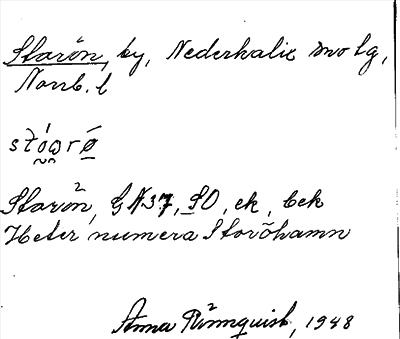 Storön, by, Nederkalix sn o tg,
Norrb. l
Storön, GK37, SO, ek, bek
Heter numera Storöhamn
Anna Rönnquist, 1948